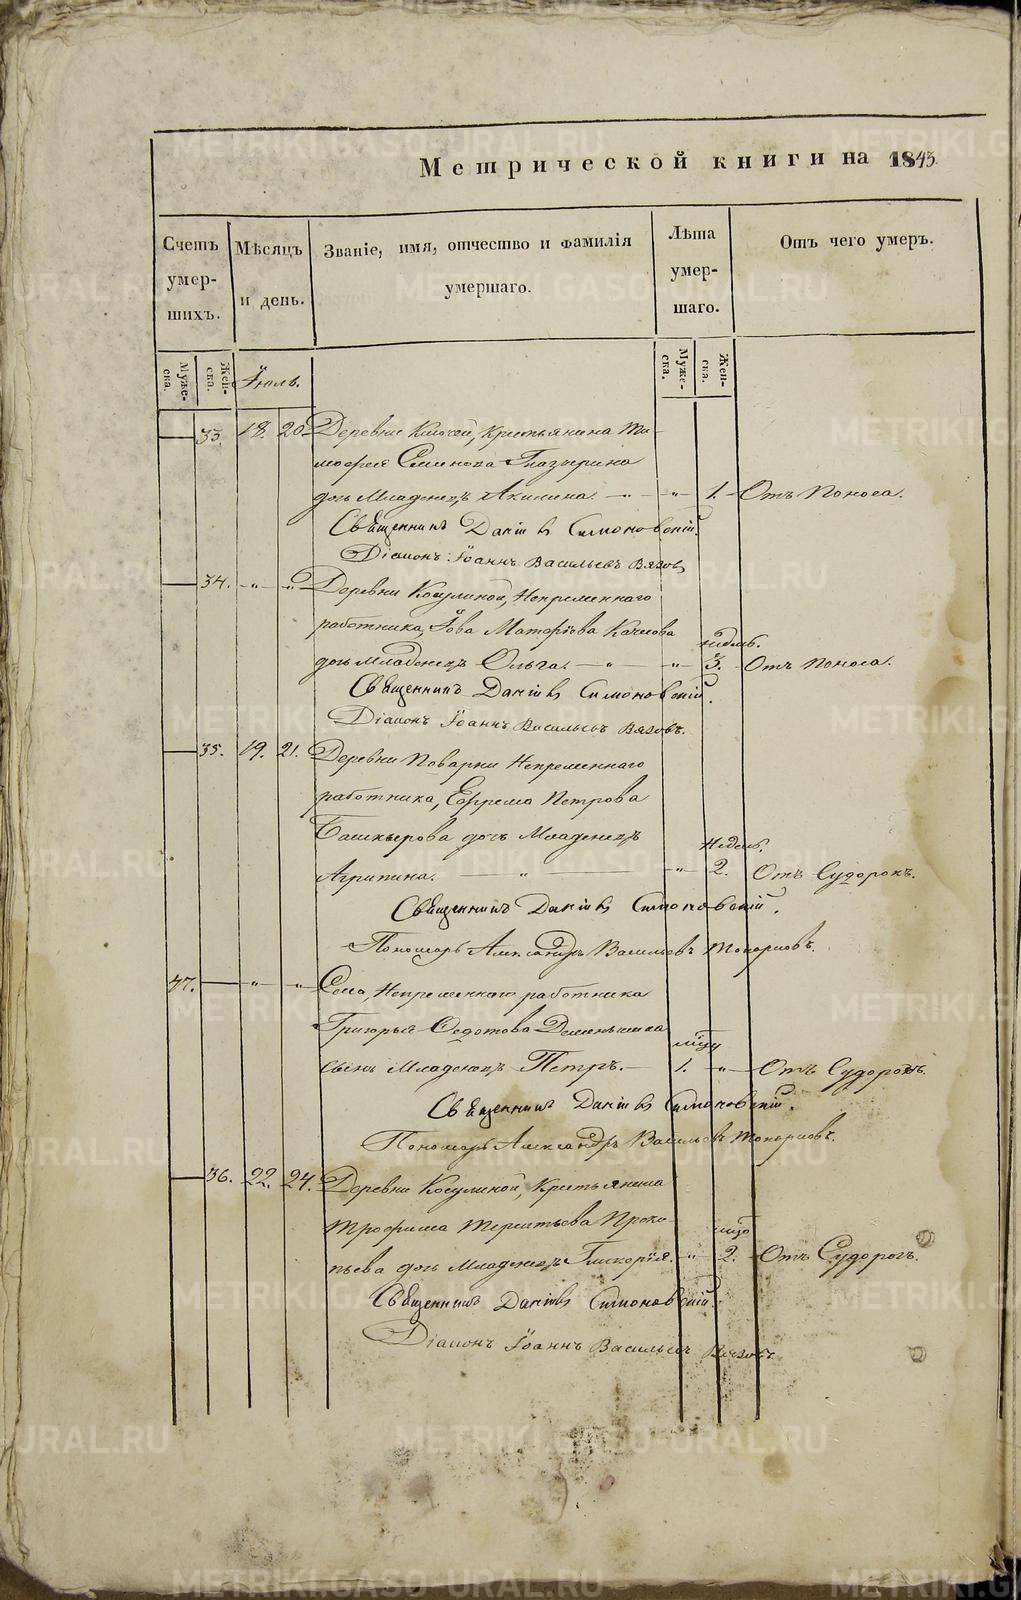 Метрической книги на 1843.
Счетъ умер- шихъ.
Мѣсяцъ и день.
Званіе, имя, отчество и фамилія умершаго.
Лѣта умер- шаго.
Отъ чего умеръ.
Муже- ска. Жен- ска. Іюль. Муже- ска. Жен- ска.
33. 18. 20. Деревни Ключей, Крестьянина Ти-
мофея Семенова Глазырина
дочь Младенецъ Акилина. — „ — „ — 1. Отъ Поноса.
Священникъ Даніилъ Симоновскій.
Діаконъ Іоаннъ Васильевъ Вязовъ
34. „ „ Деревни Косулиной, Непременнаго
работника, Іова Матфіева Качкова недѣль.
дочь Младенецъ Ольга. — „ — „ — 3. Отъ Поноса.
Священникъ Даніилъ Симоновскій.
Діаконъ Іоаннъ Васильевъ Вязовъ.
35. 19. 21. Деревни Поварни Непременнаго
работника, Ефрема Петрова
Башкырова дочь Младенецъ Недель.
Агрипина. — „ — „ — 2. Отъ Судорокъ.
Священникъ Даніилъ Симоновскій.
Пономарь Александръ Васильевъ Топорковъ.
47. „ „ Села, Непременнаго работника
Григорья Федотова Деменьшина мцъ
сынъ Младенецъ Петръ. — 1. — „ — Отъ Судорокъ.
Священникъ Даніилъ Симоновскій.
Пономарь Александръ Васильевъ Топорковъ.
36. 22. 24. Деревни Косулиной, Крестьянина
Трофима Терентьева Проко-
пьева дочь Младенецъ Гликерія. — „ — 2. Отъ Судорогъ.
Священникъ Даніилъ Симоновскій.
Діаконъ Іоаннъ Васильевъ Вязовъ
METRIKI.GASO-URAL.RU